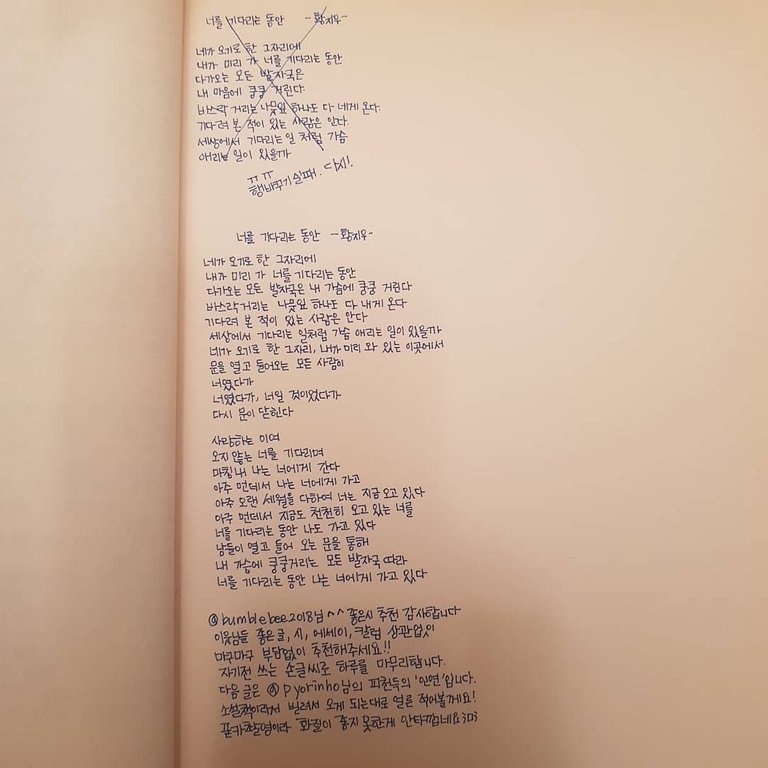 너를 기다리는 동안 -황지우-
네가 오기로 한 그자리에
내가 미리 가 너를 기다리는 동안
다가오는 모든 발자국은
내 마음에 쿵쿵 거린다.
바스락 거리는 나뭇잎 하나도 다 네게 온다.
기다려 본 적이 있는 사람은 안다.
세상에서 기다리는 일 처럼 가슴
애리는 일이 있을까
ㅠㅠ
행바꾸기 실패. 다시!
너를 기다리는 동안 -황지우-
네가 오기로 한 그자리에
내가 미리 가 너를 기다리는 동안
다가오는 모든 발자국은 내 가슴에 쿵쿵 거린다
바스락거리는 나뭇잎 하나도 다 내게 온다
기다려 본 적이 있는 사람은 안다
세상에서 기다리는 일처럼 가슴 애리는 일이 있을까
네가 오기로 한 그자리, 내가 미리 와 있는 이곳에서
문을 열고 들어오는 모든 사람이
너였다가
너였다가, 너일 것이었다가
다시 문이 닫힌다
사랑하는 이여
오지 않는 너를 기다리며
마침내 나는 너에게 간다
아주 먼데서 나는 너에게 가고
아주 오랜 세월을 다하여 너는 지금 오고 있다
아주 먼데서 지금도 천천히 오고 있는 너를
너를 기다리는 동안 나도 가고 있다
남들이 열고 들어 오는 문을 통해
내 가슴에 쿵쿵거리는 모든 발자국 따라
너를 기다리는 동안 나는 너에게 가고 있다
@bumblebee2018님 ^^ 좋은시 추천 감사합니다
이웃님들 좋은글, 시, 에세이, 칼럼 상관없이
마구마구 부담없이 추천해주세요!!
자기전 쓰는 손글씨로 하루를 마무리합니다.
다음 글은 @pyorinho님의 피천득의 '인연'입니다.
소설책이라서 빌려서 오게 되는대로 얼른 적어볼께요!
폰카촬영이라 화질이 좋지 못한게 안타깝네요